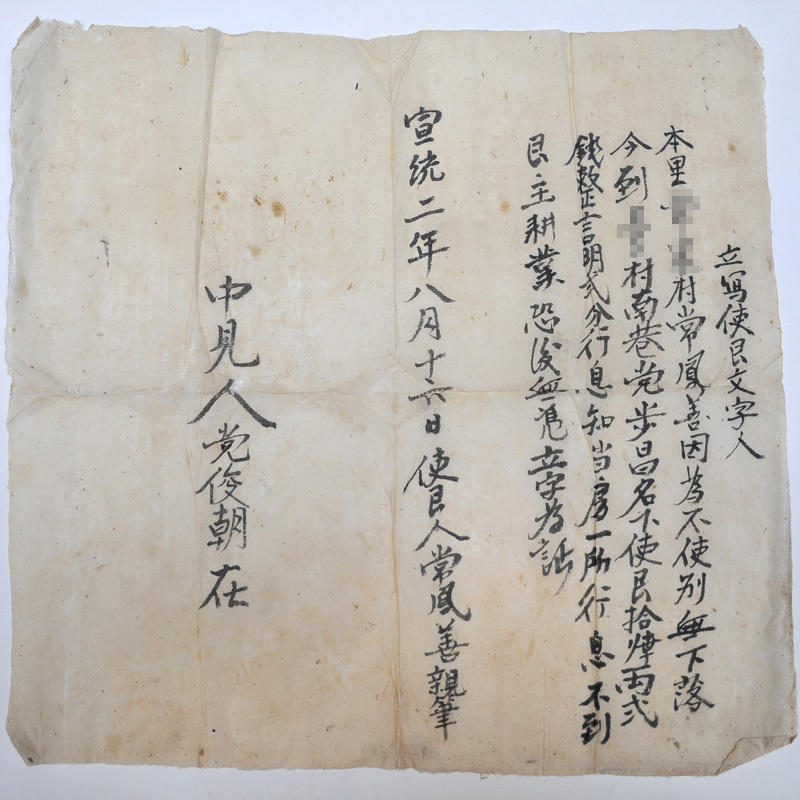 立寫使艮文字人
本里村常鳳善因為不使別無下落
今到村南巷党步昌名下使艮拾肆両弍
錢整言明弍分行息知当房一所行息不到
艮主耕業恐後無凴立字為証
宣統二年八月十六日使艮人常凮善親筆
中見人党俊朝在